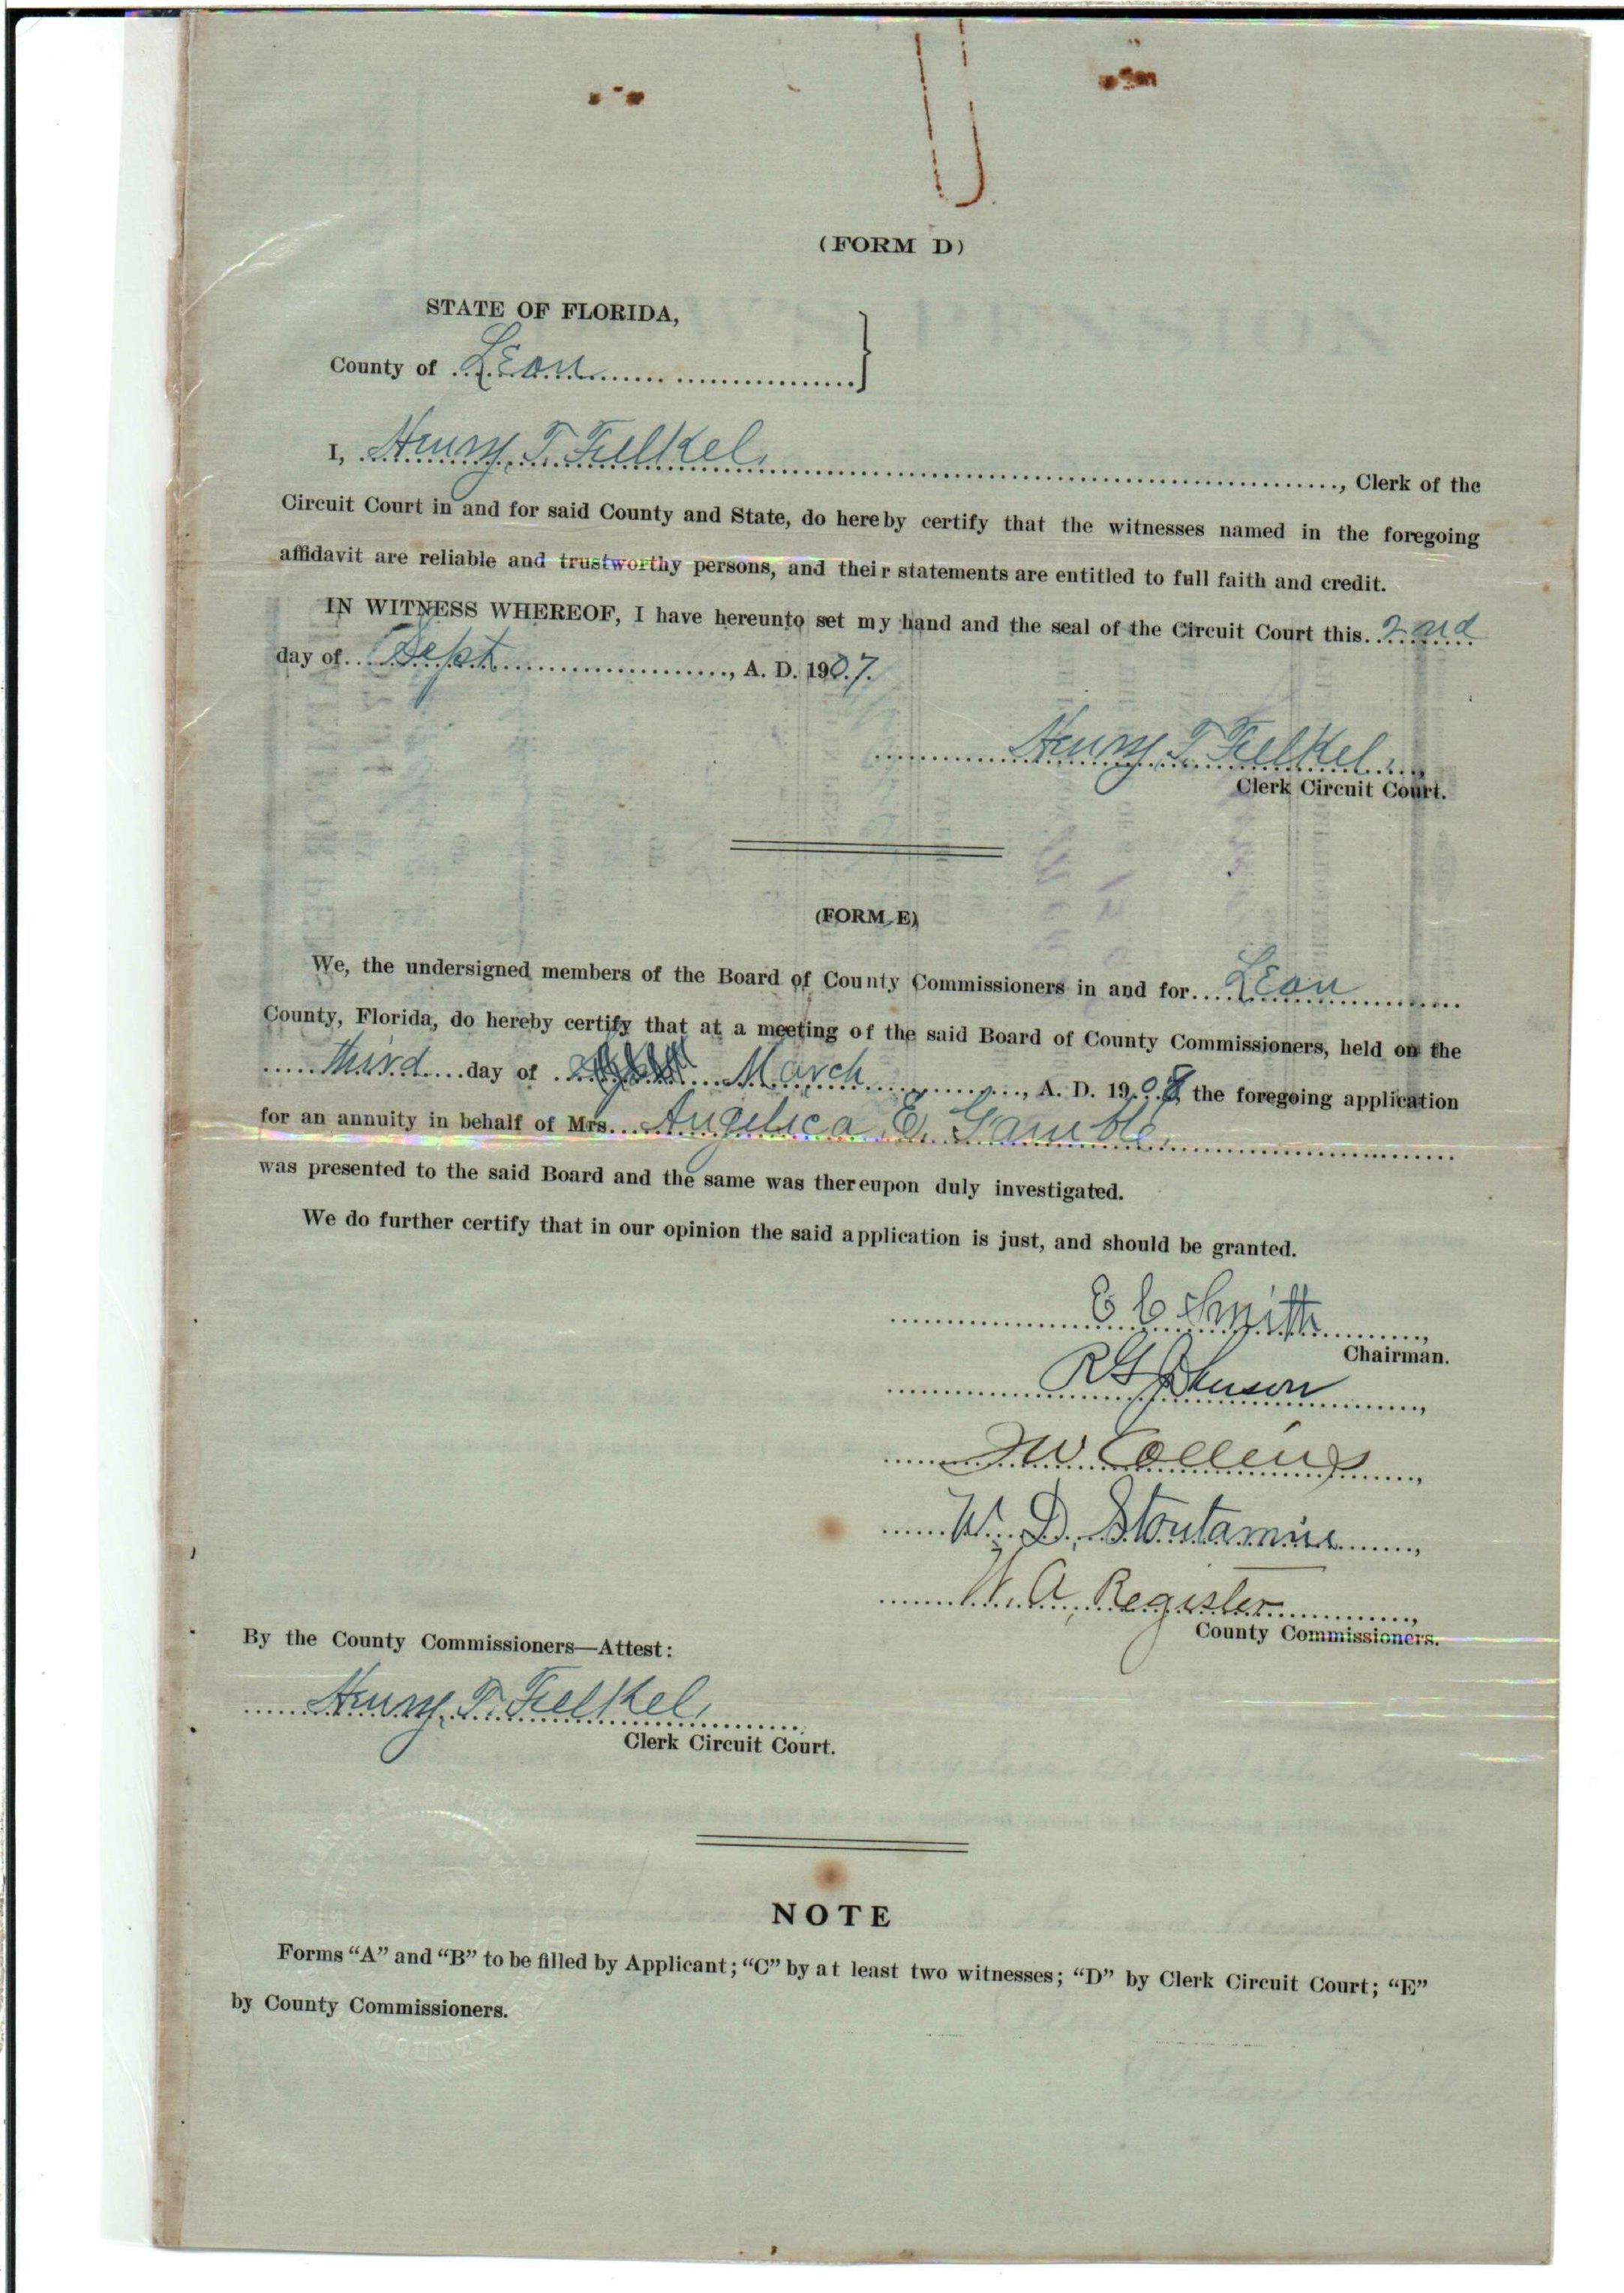 (FORM D)
STATE OF FLORIDA,
County of Leon
I, Henry T. Felkel, Clerk of the
Circuit Court in and for said County and State, do hereby certify that the witnesses named in the foregoing
affidavit are reliable and trustworthy persons, and their statements are entitled to full faith and credit.
IN WITNESS WHEREOF, I have hereunto set my hand and the seal of the Circuit Court this 2nd
day of Sept, A. D. 1907.
Henry T. Felkel,
Clerk Circuit Court.
(FORM E)
We, the undersigned members of the Board of County Commissioners in and for Leon
County, Florida, do hereby certify that at a meeting of the said Board of County Commissioners, held on the
third day of March, A. D. 1908, the foregoing application
for an annuity in behalf of Mrs. Angelica E. Gamble,
was presented to the said Board and the same was thereupon duly investigated.
We do further certify that in our opinion the said application is just, and should be granted.
E C Smith,
Chairman.
R G Johnson,
W Collins,
W. D. Stoutamire,
W. A. Register,
County Commissioners.
By the County Commissioners—Attest:
Henry T. Felkel,
Clerk Circuit Court.
NOTE
Forms "A" and "B" to be filled by Applicant; "C" by at least two witnesses; "D" by Clerk Circuit Court; "E"
by County Commissioners.
COUNTY